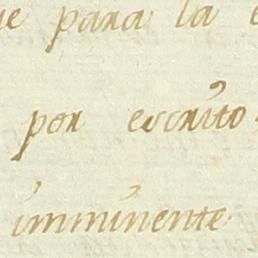 para la
por escrito.
imminente